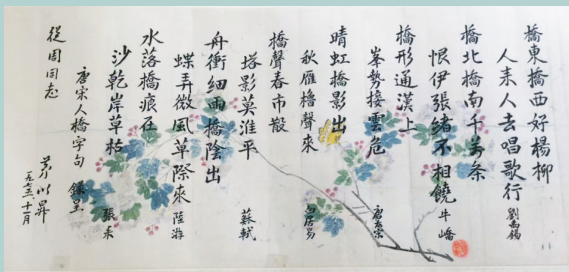 橋東橋西好楊柳
人来人去唱歌行 劉禹錫
橋北橋南千萬条
恨伊張緒不相饒 牛嶠
橋形通漢上
峯勢接雲危 唐玄宗
晴虹橋影出
秋雁櫓聲來 白居易
橋聲春市散
塔影莫淮平 蘇軾
舟衝細雨橋陰出
蝶弄微風草際來 陸游
水落橋痕在
沙乾岸草枯 張耒
唐宋人橋字句 錄呈
從周同志
茅以昇
一九七三、十一月